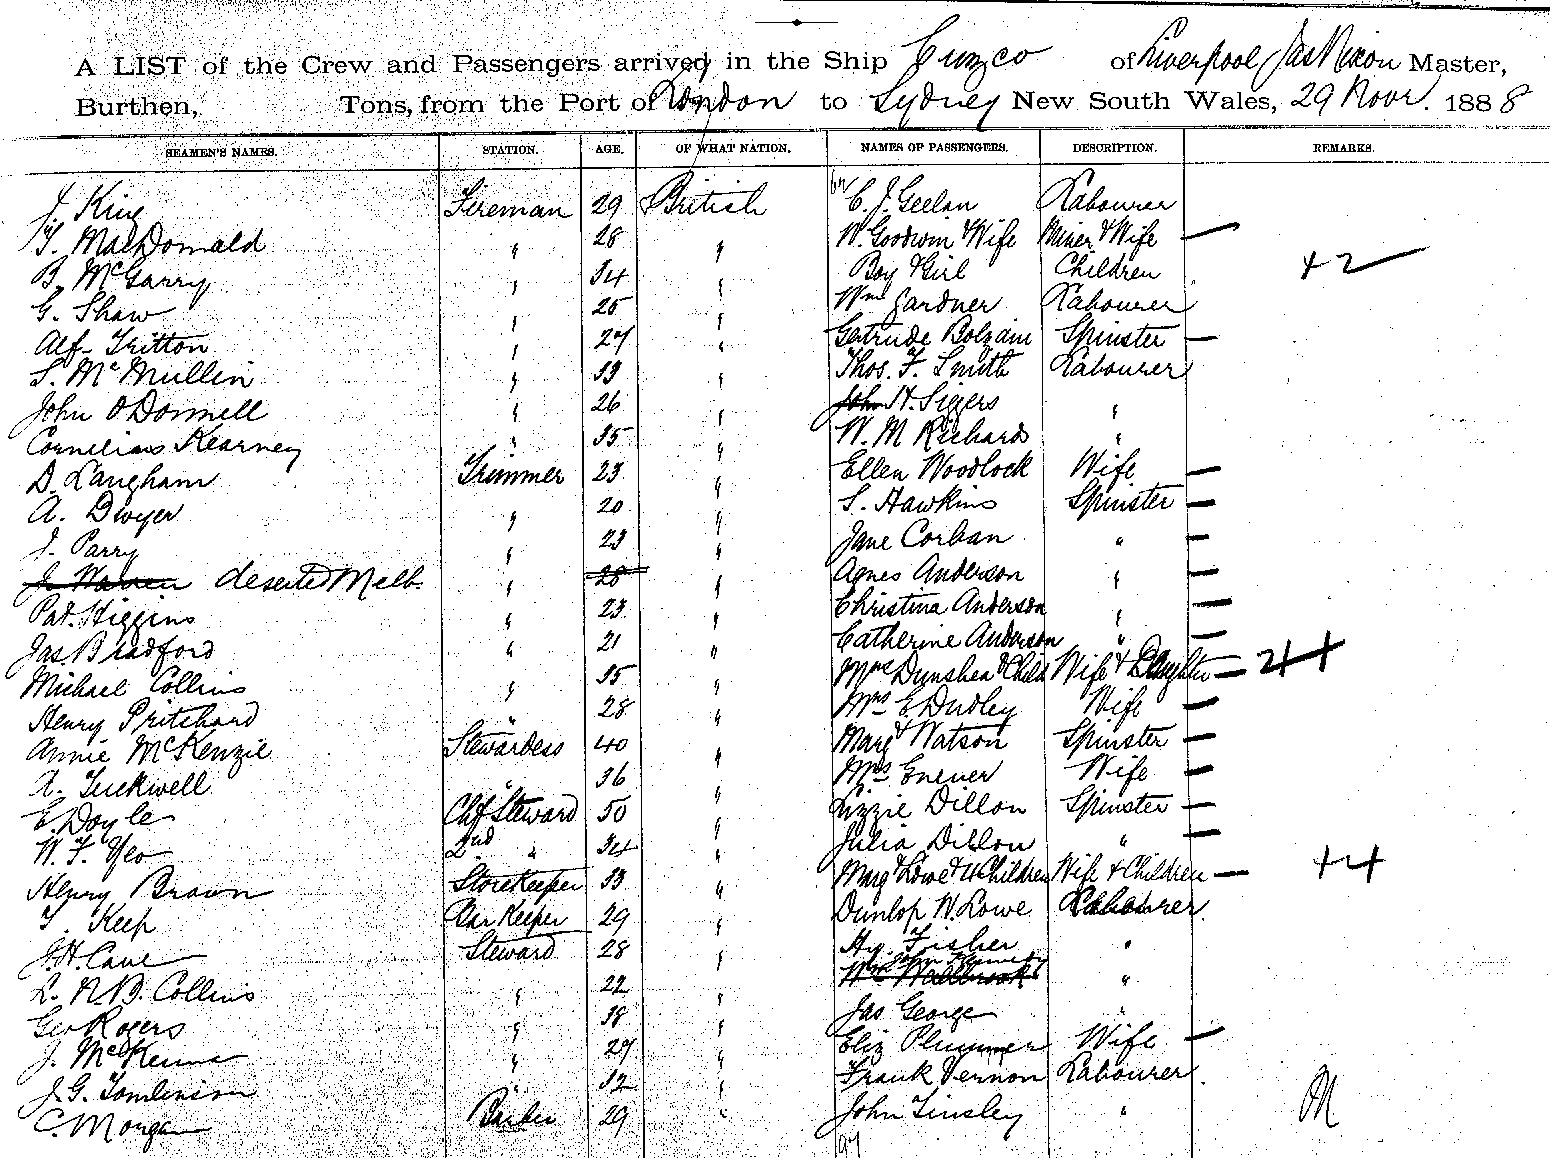 A LIST of the Crew and Passengers arrived in the Ship Cuzco of Liverpool Jas Nixon Master,
Burthen, Tons, from the Port of London to Sydney New South Wales, 29 Novr. 1888
SEAMEN'S NAMES. STATION. AGE. OF WHAT NATION. NAMES OF PASSENGERS. DESCRIPTION. REMARKS.
J. King Fireman 29 British C. J. Geelan Labourer
T. MacDonald " 28 " W. Goodwin & Wife Miner & Wife —
B. McGarry " 34 " Boy & Girl Children +2
G. Shaw " 25 " Wm Gardner Labourer
Alf. Tritton " 27 " Gertrude Bolzain Spinster —
S. McMullin " 39 " Thos. F. Smith Labourer
John O'Donnell " 26 " John H. Siggers "
Cornelius Kearney " 35 " W. M Richards "
D. Langham Trimmer 23 " Ellen Woodlock Wife —
A. Dwyer " 20 " S. Hawkins Spinster —
J. Parry " 23 " Jane Corban " —
J. Warren deserted Melb. " 28 " Agnes Anderson " —
Pat. Higgins " 23 " Christina Anderson " —
Jas. Bradford " 21 " Catherine Anderson " —
Michael Collins " 35 " Mrs Dunshea & Child Wife & Daughter — 2+1
Henry Pritchard " 28 " Mrs E. Dudley Wife —
Annie McKenzie Stewardess 40 " Margt Watson Spinster —
A. Tuckwell " 36 " Mrs Enever Wife —
E. Doyle Chf Steward 50 " Lizzie Dillon Spinster —
W. F. Yeo 2nd " 34 " Julia Dillon " —
Henry Brown Storekeeper 33 " Margt Lowe & 4 Children Wife & Children — +4
T. Keep Bar Keeper 29 " Dunlop W. Lowe Labourer
J. H. Cave Steward 28 " Hy. Fisher "
L. N. B. Collins " 22 " Wm Wallbrook John Kennedy "
Geo Rogers " 38 " Jas George "
J. McKenna " 29 " Eliz Plummer Wife —
J. G. Tomlinson " 32 " Frank Vernon Labourer
C. Morgan Barber 29 " John Tinsley " M
97